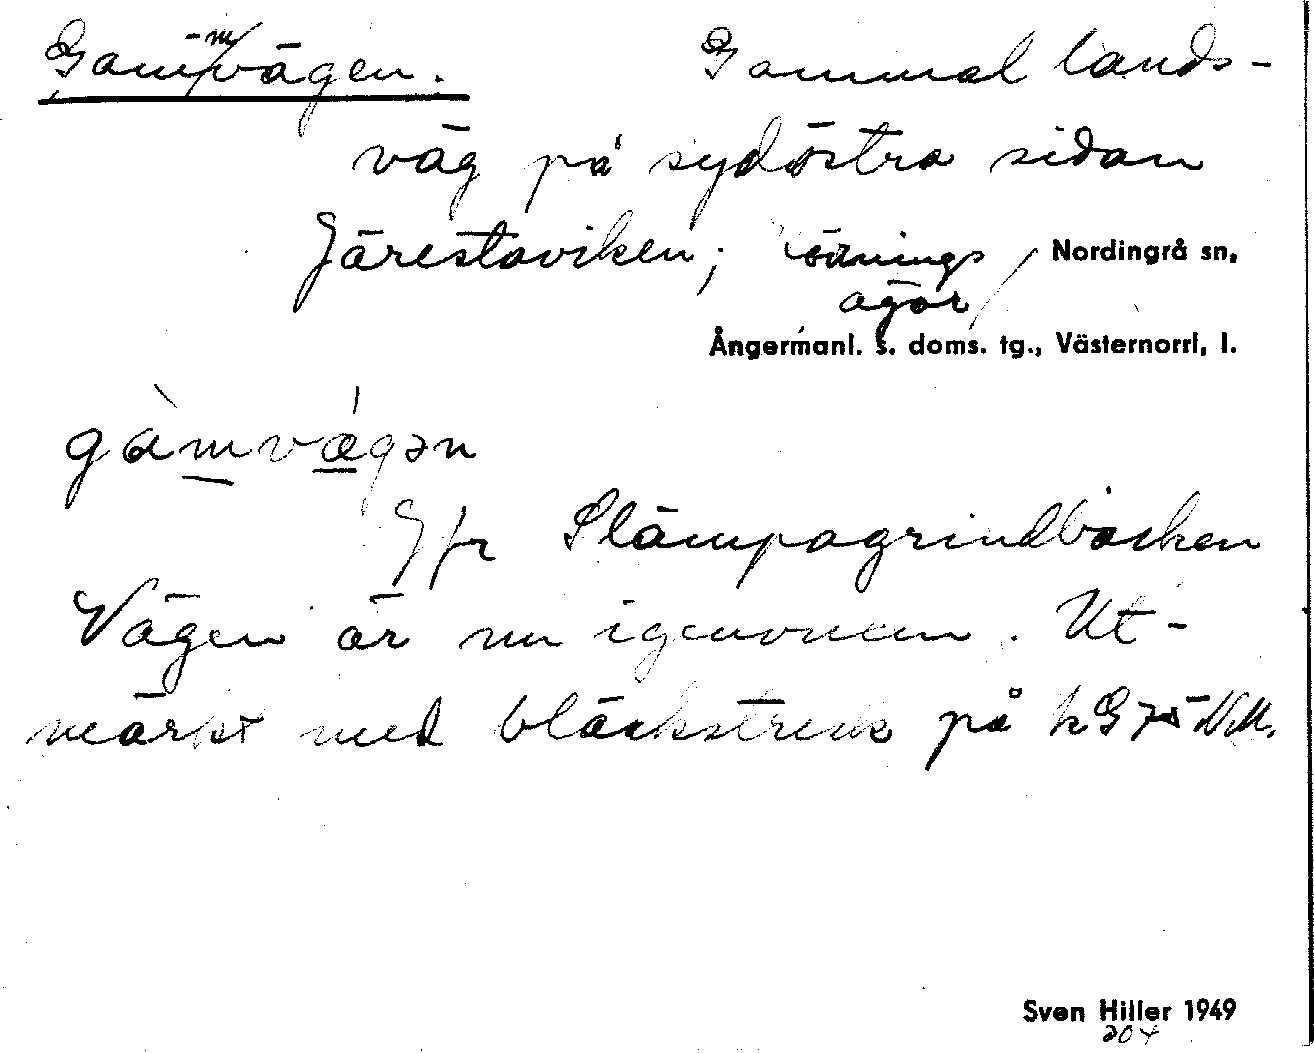 Gam-m/vägen. Gammal lands-
väg på sydöstra sidan
Gärestaviken; ödnings / Nordingrå sn,
ägor
Ångermanl. s. doms. tg., Västernorrl, l.
gàmvǽgən
Jfr Slämpagrindbacken
Vägen är nu igenvuxen. Ut-
märkt med bläckstreck på k
Sven Hiller 1949
204